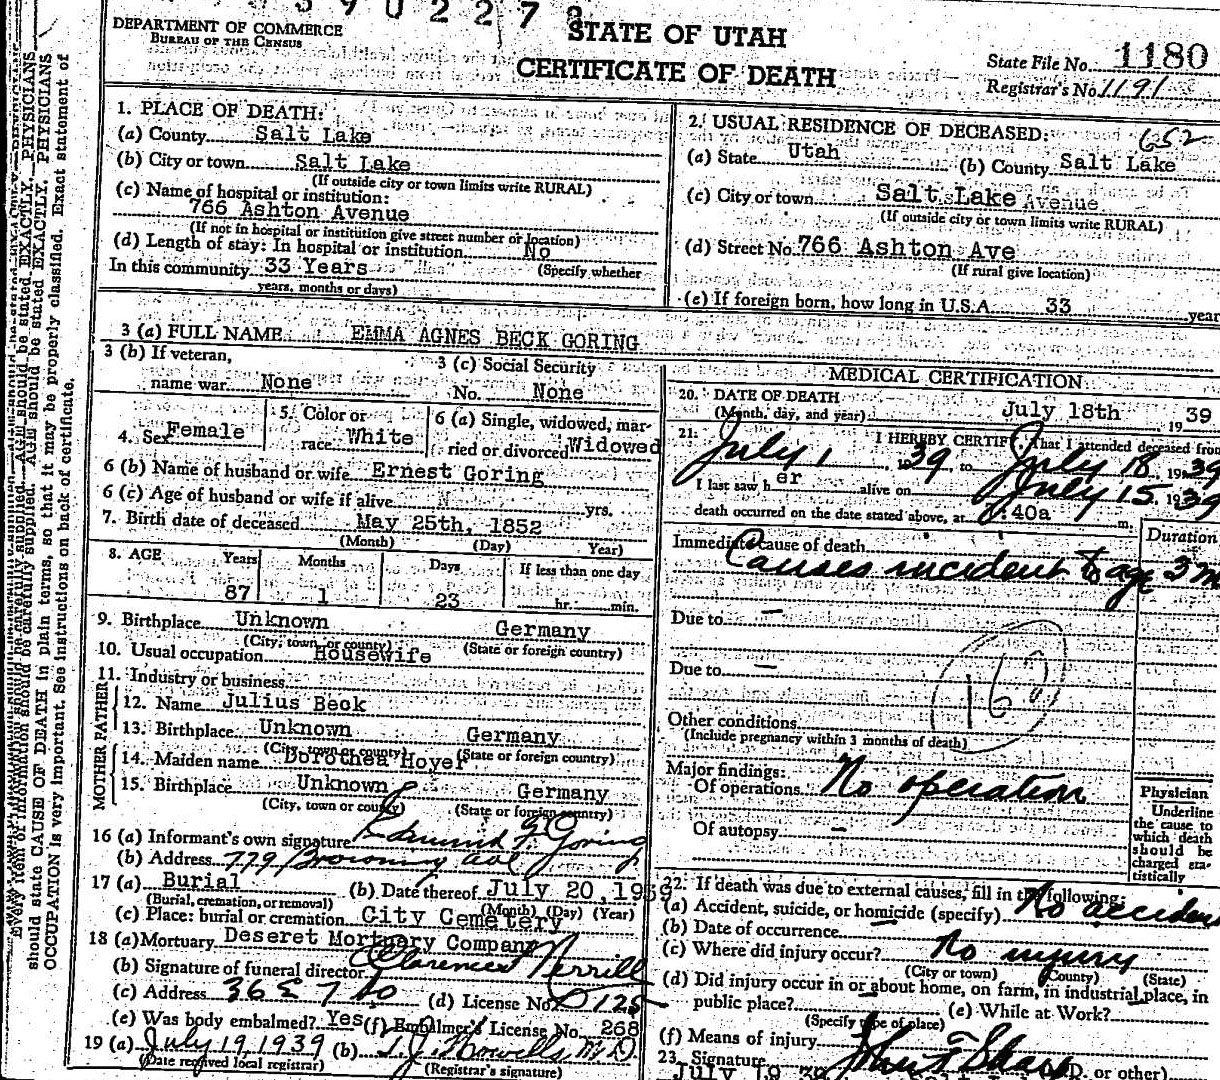 DEPARTMENT OF COMMERCE
BUREAU OF THE CENSUS
STATE OF UTAH
CERTIFICATE OF DEATH
State File No. 1180
Registrar's No. 1191
1. PLACE OF DEATH:
(a) County Salt Lake
(b) City or town Salt Lake
(If outside city or town limits write RURAL)
(c) Name of hospital or institution:
766 Ashton Avenue
(If not in hospital or institution give street number or location)
(d) Length of stay: In hospital or institution No
In this community 33 Years (Specify whether
years, months or days)
2. USUAL RESIDENCE OF DECEASED: 652
(a) State Utah (b) County Salt Lake
(c) City or town Salt Lake
(If outside city or town limits write RURAL)
(d) Street No. 766 Ashton Ave
(If rural give location)
(e) If foreign born, how long in U.S.A. 33 year
3 (a) FULL NAME EMMA AGNES BECK GORING
3 (b) If veteran, name war None
3 (c) Social Security No. None
4. Sex Female
5. Color or race White
6 (a) Single, widowed, married or divorced Widowed
6 (b) Name of husband or wife Ernest Goring
6 (c) Age of husband or wife if alive yrs.
7. Birth date of deceased May 25th, 1852
(Month) (Day) Year)
8. AGE Years Months Days If less than one day
87 1 23 hr. min.
9. Birthplace Unknown Germany
(City, town, or county) (State or foreign country)
10. Usual occupation Housewife
11. Industry or business
FATHER
12. Name Julius Beck
13. Birthplace Unknown Germany
(City, town or county) (State or foreign country)
MOTHER
14. Maiden name Dorothea Hoyer
15. Birthplace Unknown Germany
(City, town or county) (State or foreign country)
16 (a) Informant's own signature Edmund F Goring
(b) Address 779 Browning Ave
17 (a) Burial (b) Date thereof July 20, 1939
(Burial, cremation, or removal) (Month) (Day) (Year)
(c) Place: burial or cremation City Cemetery
18 (a) Mortuary Deseret Mortuary Company
(b) Signature of funeral director Clarence Nerrill
(c) Address 36 E 7 So (d) License No. D 125
(e) Was body embalmed? Yes (f) Embalmer's License No. 268
19 (a) July 19, 1939 (b) T. J. Howells, M D
(Date received local registrar) (Registrar's signature)
MEDICAL CERTIFICATION
20. DATE OF DEATH
(Month, day, and year) July 18th 1939
21. I HEREBY CERTIFY, That I attended deceased from
July 1 1939 to July 18 1939
I last saw her alive on July 15 1939
death occurred on the date stated above, at :40a m.
Duration
Immediate cause of death
Causes incident to age 3 m
Due to —
Due to —
Other conditions
(Include pregnancy within 3 months of death)
Major findings:
Of operations No operation
Of autopsy —
Physician
Underline
the cause to
which death
should be
charged sta-
tistically
22. If death was due to external causes, fill in the following:
(a) Accident, suicide, or homicide (specify) No accident
(b) Date of occurrence —
(c) Where did injury occur? No injury
(City or town) County) (State)
(d) Did injury occur in or about home, on farm, in industrial place, in
public place? (e) While at Work?
(Specify type of place)
(f) Means of injury —
23. Signature D. or other)
should state CAUSE OF DEATH in plain terms, so that it may be properly classified. Exact statement of
OCCUPATION is very important. See instructions on back of certificate.